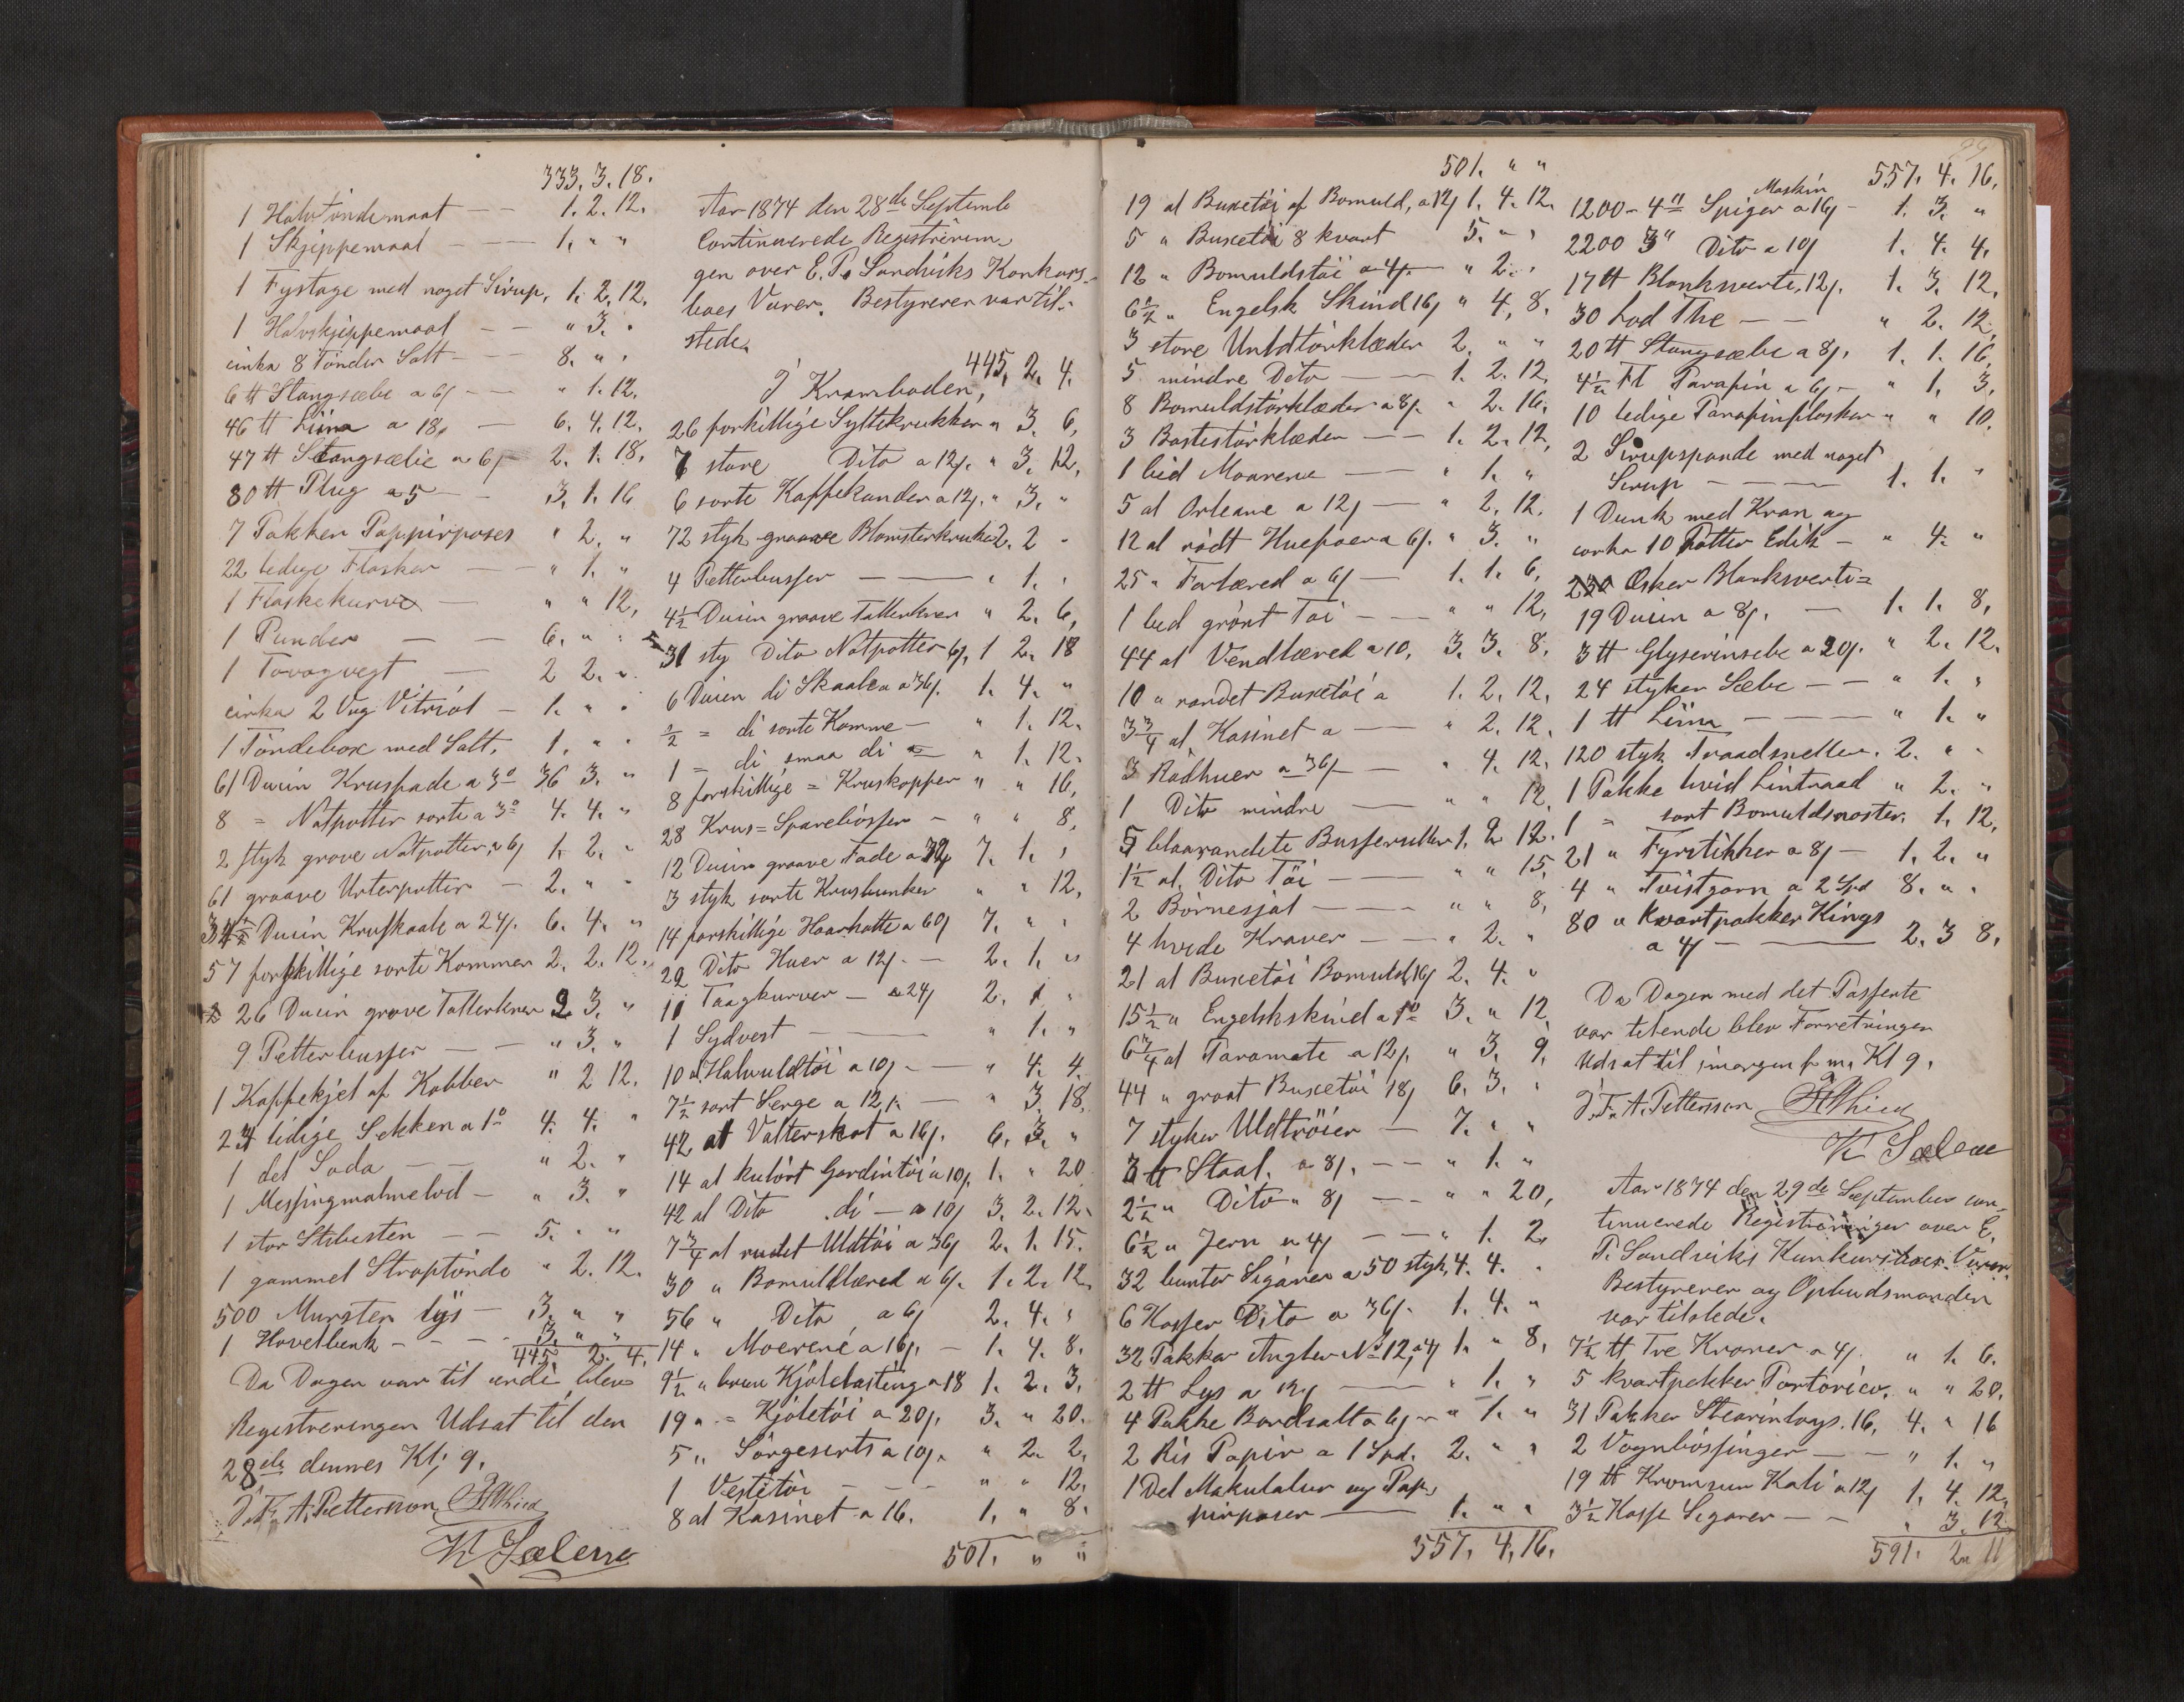 333. 3. 18.
1 Halvtöndemaat — — 1. 2. 12.
1 Skjeppemaal — — 1. " "
1 Fystage med noget Sirup, 1. 2. 12.
1 Halvskjeppemaal — — " 3. "
cirka 8 Tönder Salt — — 8. " "
6 tt Stangsæbe a 6/ — — " 1. 12.
46 tt Liim a 18/ — 6. 4. 12.
47 tt Stangsæbe a 6/ — 2. 1. 18.
80 tt Plug a 5 — — 3. 1. 16
7 Pakker Pappirposer " 2. "
22 ledige Flasker — — " 1. "
1 Flaskekurv — " " 12,
1 Punder — — 6. " "
1 Tovogvegt — 2 2. "
cirka 2 Vog Vitriol — 1. " "
1 Töndeboxe med Salt, 1. " "
61 Dusin Krusfade a 3º 36 3. "
8 = Natpotter sorte a 3º 4. 4. "
2 styk grove Natpotter, a 6/ 1. 2. "
61 graave Urtepotter — 2. " "
34½ Dusin Krusskaale a 24/. 6. 4. "
57 forskillige sorte Kommer 2. 2. 12.
26 Dusin grove Tallerkner 9. 3. "
9 Petterbusser — — " 3. "
1 Kaffekjel af Kobber " 2 12.
24 ledige Sekken a 1º 4. 4. "
1 del Soda — — " 2. "
1 Messingmalmelod — " 3. "
1 stor Slibesten — — 5. " "
1 gammel Straptönde " 2. 12.
500 Mursten lys — 3. " "
1 Hovelbenk — — — 3. " "
445. 2. 4.
Da Dagen var til ende blev
Registreringen Udsat til den
28de dennes Kl; 9.
J. F. A. Pettersson
K Sælene
Aar 1874 den 28de Septembr
Continuerede Registrerin-
gen over E. P. Sandviks Konkurs-
boes Varer. Bestyrerer var til-
stede.
445, 2. 4.
I Kramboden,
26 forkillige Syltekrukker " 3. 6,
7 store Dito a 12/. " 3. 12,
6 sorte Kaffekander a 12/. " 3. "
72 styk graave Blomsterkruker 2. 2 "
4 Petterbusser — — — " 1. "
4½ Dusin graave Tallerkner " 2. 6,
31 sty Dito Natpotter 6/. 1 2. 18
6 Dusin di Skaaler a 36/. 1. 4. "
½ = di sorte Komme — " 1. 12.
1 = di smaa di — " 1. 12.
8 forskillige = Kruskopper " " 16,
28 Krus = Sparebösser — " " 8,
12 Dusin graave Fade a 72/ 7. 1. "
3 styk sorte Krusbunker " " 12,
14 forskillige Haarhatte a 60/ 7. " "
22 Dito Huer a 12/. — 2. 1. "
11 Taagkurver — a 24/ 2. 1 "
1 Sydvest — — — " 1. "
10 al Halvuldtöi a 10/ — — " 4. 4.
7½ sort Serge a 12/. — " 3. 18.
42 al Vatterskat a 16/. 6. 3. "
14 al kulört Gardintöi a 10/. 1. " 20
42 al Dito di — a 10/ 3. 2. 12.
7¾ al rudet Uldtöi a 36/ 2. 1. 15.
30 " Bomuldlæred a 6/. 1. 2. 12.
56 " Dito a 6/ 2. 4. "
14 " Moerené a 16/. — 1. 4. 8.
9½ " brun Kjölelasting a 18 1. 2. 3.
19 " = Kjöletöi a 20/. 3. " 20.
5 " Sörgesirts a 10/. " 2. 2,
1 Vestetöi — — — " " 12,
8 al Kasinet a 16. 1, " 8.
501. " "
501. " "
19 al Buxetöi af Bomuld, a 12/ 1. 4. 12.
5 " Buxetöi 8 kvart 5. " "
12 " Bomuldstöi a 4/. — " 2. "
6½ " Engelsk Skind 16/ " 4, 8.
3 store Uldtörklæder 2. " "
5 mindre Deto — — 1. 2. 12,
8 Bomuldstörklæder a 8/. " 2. 16,
3 Bastestörklæder — — 1. 2. 12,
1 bid Moarene — — " 1. "
5 al Orleane a 12/ — " 2. 12.
12 al rödt Huefoer a 6/. " 3. "
25 " Forlæred a 6/ — 1. 1. 6,
1 bed grönt Töi — — " " 12,
44 al Vendlæred a 10, 3. 3. 8.
10 " randet Buxetöi a 1. 2. 12.
3¾ al Kasinet a — — " 2. 12,
3 Rödhuer a 36/ — — " 4. 12.
1 Dito mindre — — " " 12,
5 blaarandete Busseruller 1. 2 12.
1½ al. Dito Töi — — " " 15,
2 Börnesjal — — — " " 8,
4 hvide Kraver — — " 2. "
21 al Buxetöi Bomuld, 16/ 2. 4. "
15½ " Engelskskind a 1º 3. " 12,
6¾ al Paramate a 12/. " 3. 9.
44 " graat Buxetöi 18/ 6. 3. "
7 styker Uldtröier — 7. " "
3 tt Staal, a 8/. — — " 1. "
2½ " Dito " 8/ — — " " 20,
6½ " Jern a 4/ — — " 1. 2.
32 bunter Sigarer a 50 styk, 4. 4. "
6 Kasser Dito a 36/. 1. 4. "
32 Pakker Angler No 12, a 4/ 1. " 8,
2 tt Lys a 12/ — — " 1. "
4 Pakke Bordsalt a 6/ — " 1. "
2 Ris Papir a 1 Spd. 2. " "
1 Del Makulatur og Pap-
pirposer — — 1. " "
557. 4. 16.
557. 4. 16.
1200 - 4" Maskin Spiger a 16/ — 1. 3. "
2200 3" Dito a 10/ 1. 4. 4.
17 tt Blanksverte, 12/. 1. 3. 12,
30 Lod The — — " 2. 12,
20 tt Stangsæbe a 8/. 1. 1. 16,
4½ Fl Parafin a 6/. — " 1, 3.
10 ledige Parafinflasker " " 10.
2 Sirupspande med noget
Sirup — — — — 1. 1. "
1 Dunk med Kran og
cirka 10 Potter Edik — " 4. "
230 Æsker Blanksverte =
19 Dusin a 8/. — 1. 1. 8,
3 tt Glyserinsebe a 20/. " 2. 12.
24 styker Sæbe — — " 1. "
1 tt Liim — — — — " 1. "
120 styk Traadsneller. 2. " "
1 Pakke hvid Lintraad " 2. "
1 = sort Bomuldsnoster. 1. 12,
21 " Fyrstikker a 8/ — 1. 2. "
4 " Tvistgarn a 2 Spd 8. " "
80 " Kvartpakker Kings
a 4/ — — 2. 3 8.
Da Dagen med det Passerte
var tilende blev Forretningen
Udsat til imorgen f. m. Kl 9.
J. F. A. Pettersson
K Sælene
Aar 1874 den 29de Septembr con-
tinuerede Registreringer over E.
P. Sandviks Kunkursboes Varer.
Bestyrerer og Opbudsmanden
var tilstede.
7½ tt Tre Kroner a 4/. " 1. 6.
5 kvartpakker Portorico. " " 20.
31 Pakker Stearinlys. 16, 4. " 16
2 Vognbössinger — — " 1. "
19 tt Kromsur Kali a 12/ 1. 4. 12,
3½ Kasse Sigarer — — " 3. 12
591. 2. 11